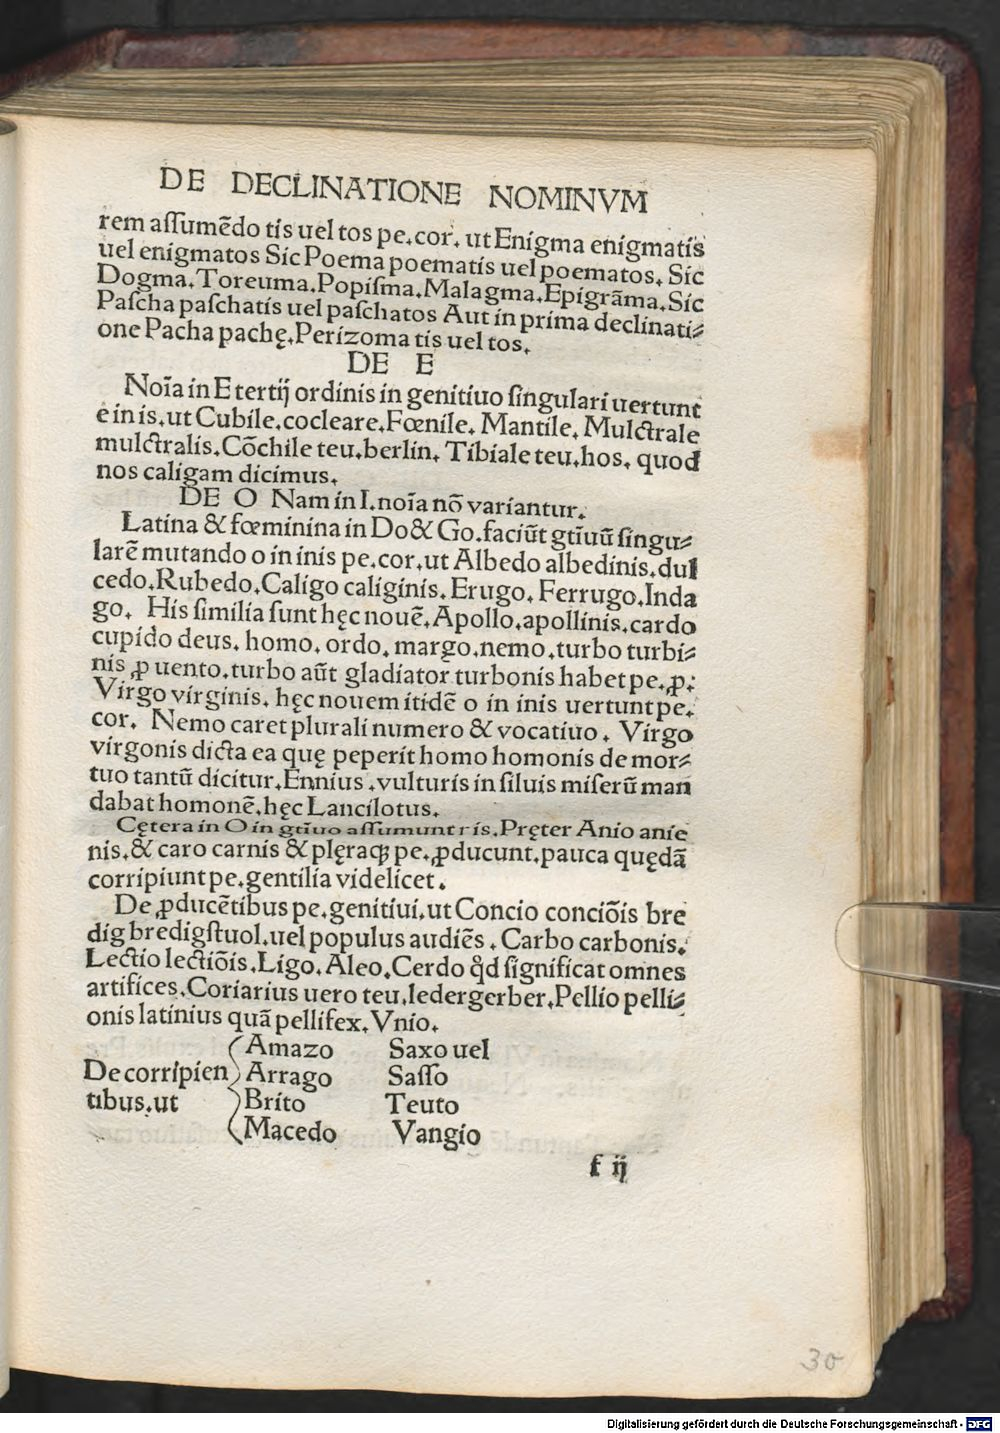 DE DECLINATIONE NOMINVM
rem aſſumēdo tis uel tos pe.cor. ut Enigma enigmatis
uel enigmatos Sic Poema poematis uel poematos. Sic
Dogma. Toreuma. Popiſma. Malagma. Epigrāma. Sic
Paſcha paſchatis uel paſchatos Aut in prima declinati⸗
one Pacha pachę. Perizoma tis uel tos.
DE E
Noīa in E tertij ordinis in genitiuo ſingulari uertunt
e in is. ut Cubile. cocleare. Fœnile. Mantile. Mulctrale
mulctralis. Cōchile teu. berlin. Tibiale teu. hos. quod
nos caligam dicimus.
DE O Nam in I. noīa nō variantur.
Latina & fœminina in Do & Go. faciūt gtīuū ſingu⸗
larē mutando o in inis pe. cor. ut Albedo albedinis. dul
cedo. Rubedo. Caligo caliginis. Erugo. Ferrugo. Inda
go. His ſimilia ſunt hęc nouē. Apollo. apollinis. cardo
cupido deus. homo. ordo. margo. nemo. turbo turbi⸗
nis ꝓ uento. turbo aūt gladiator turbonis habet pe. ꝓ.
Virgo virginis. hęc nouem itidē o in inis uertunt pe.
cor. Nemo caret plurali numero & vocatiuo. Virgo
virgonis dicta ea quę peperit homo homonis de mor⸗
tuo tantū dicitur. Ennius. vulturis in ſiluis miſerū man
dabat homonē. hęc Lancilotus.
Cętera in O in gtīuo aſſumunt nis. Pręter Anio anie
nis. & caro carnis & plęraqꝫ pe. ꝓducunt. pauca quędā
corripiunt pe. gentilia videlicet.
De ꝓducētibus pe. genitiui. ut Concio conciōis bre
dig bredigſtuol. uel populus audiēs. Carbo carbonis.
Lectio lectiōis. Ligo. Aleo. Cerdo qd̄ ſignificat omnes
artifices. Coriarius uero teu. ledergerber. Pellio pelli⸗
onis latinius quā pellifex. Vnio.
Amazo Saxo uel
De corripien Arrago Saſſo
tibus. ut Brito Teuto
Macedo Vangio
f ij
30
Digitalisierung gefördert durch die Deutsche Forschungsgemeinschaft - DFG